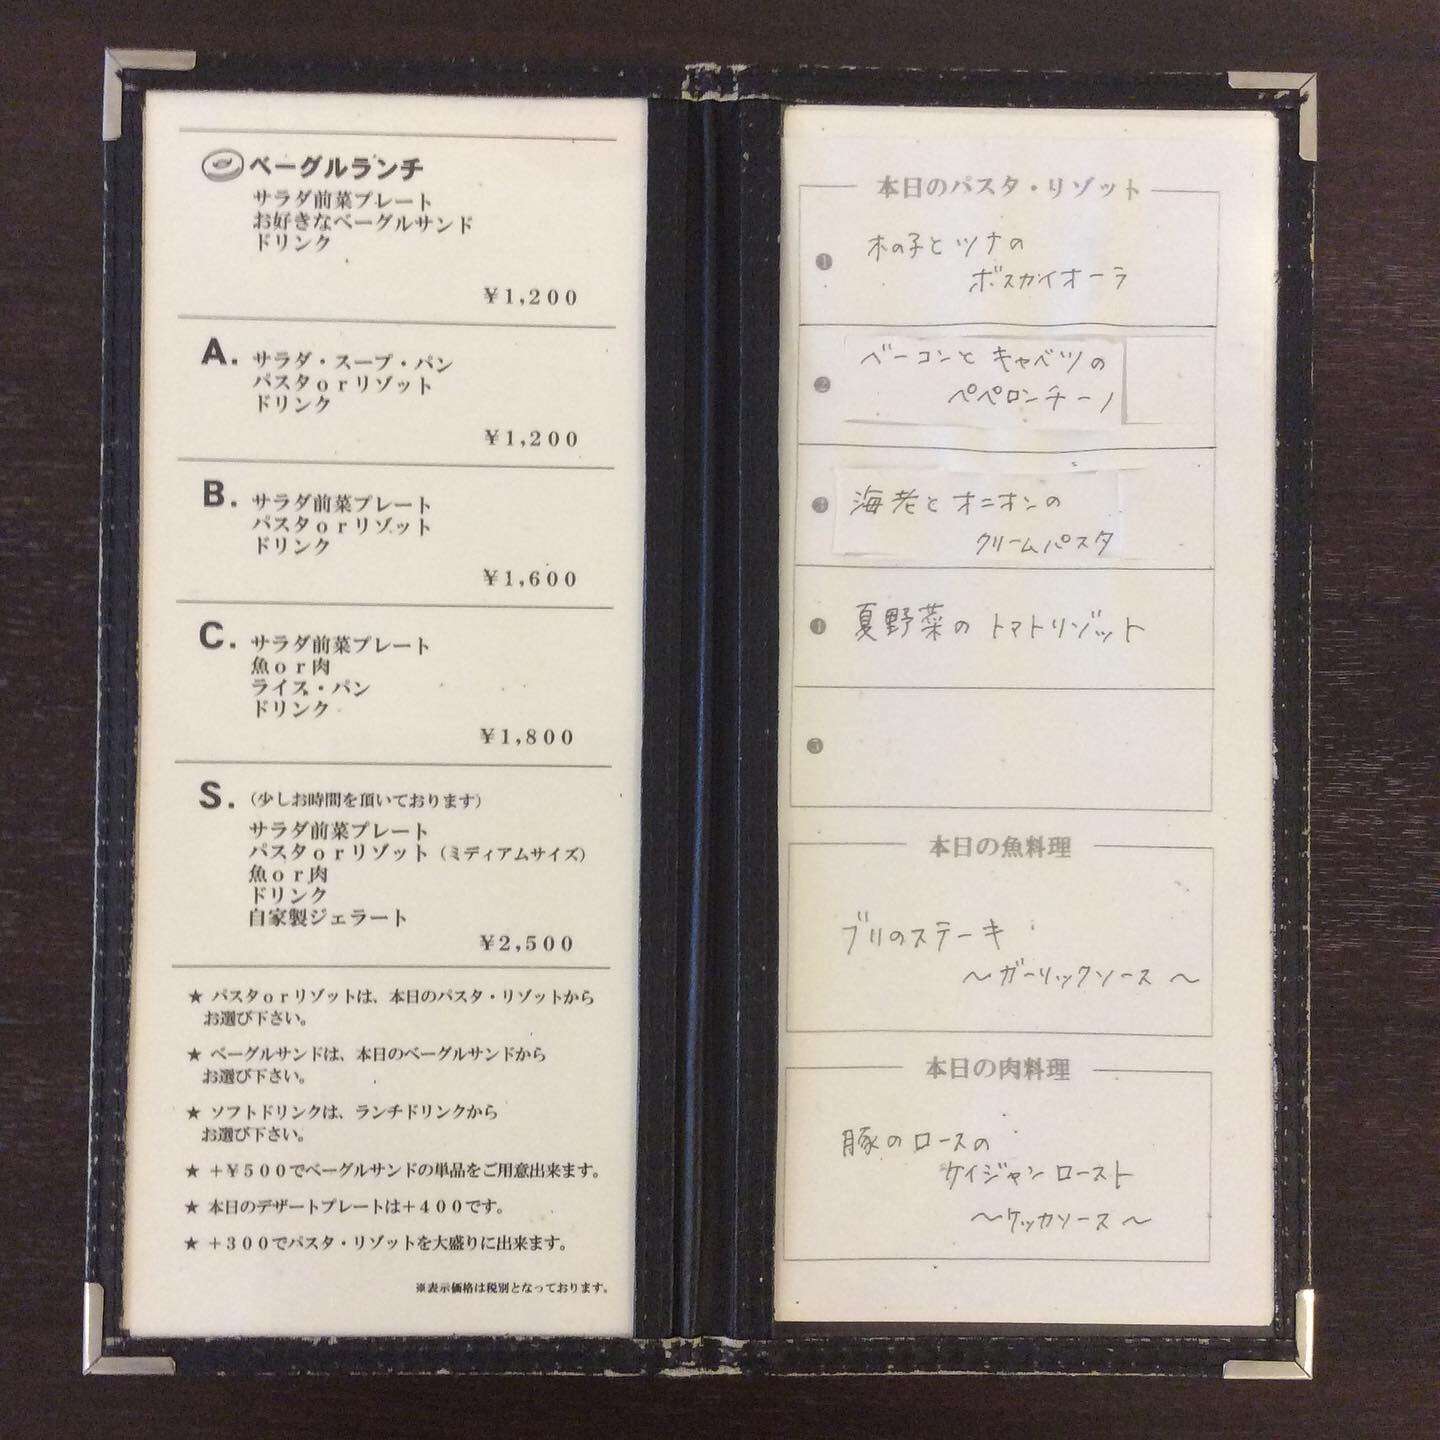 ベーグルランチ
サラダ前菜プレート
お好きなベーグルサンド
ドリンク
￥1,200
A. サラダ・スープ・パン
パスタorリゾット
ドリンク
￥1,200
B. サラダ前菜プレート
パスタorリゾット
ドリンク
￥1,600
C. サラダ前菜プレート
魚or肉
ライス・パン
ドリンク
￥1,800
S. (少しお時間を頂いております)
サラダ前菜プレート
パスタorリゾット (ミディアムサイズ)
魚or肉
ドリンク
自家製ジェラート
￥2,500
★ パスタorリゾットは、本日のパスタ・リゾットから
お選び下さい。
★ ベーグルサンドは、本日のベーグルサンドから
お選び下さい。
★ ソフトドリンクは、ランチドリンクから
お選び下さい。
★ ＋￥500でベーグルサンドの単品をご用意出来ます。
★ 本日のデザートプレートは＋400です。
★ ＋300でパスタ・リゾットを大盛りに出来ます。
※表示価格は税別となっております。
本日のパスタ・リゾット
❶ 木の子とツナの
ボスカイオーラ
❷ ベーコンとキャベツの
ペペロンチーノ
❸ 海老とオニオンの
クリームパスタ
❹ 夏野菜のトマトリゾット
❺
本日の魚料理
ブリのステーキ
～ガーリックソース～
本日の肉料理
豚のロースの
ケイジャンロースト
～ケッカソース～